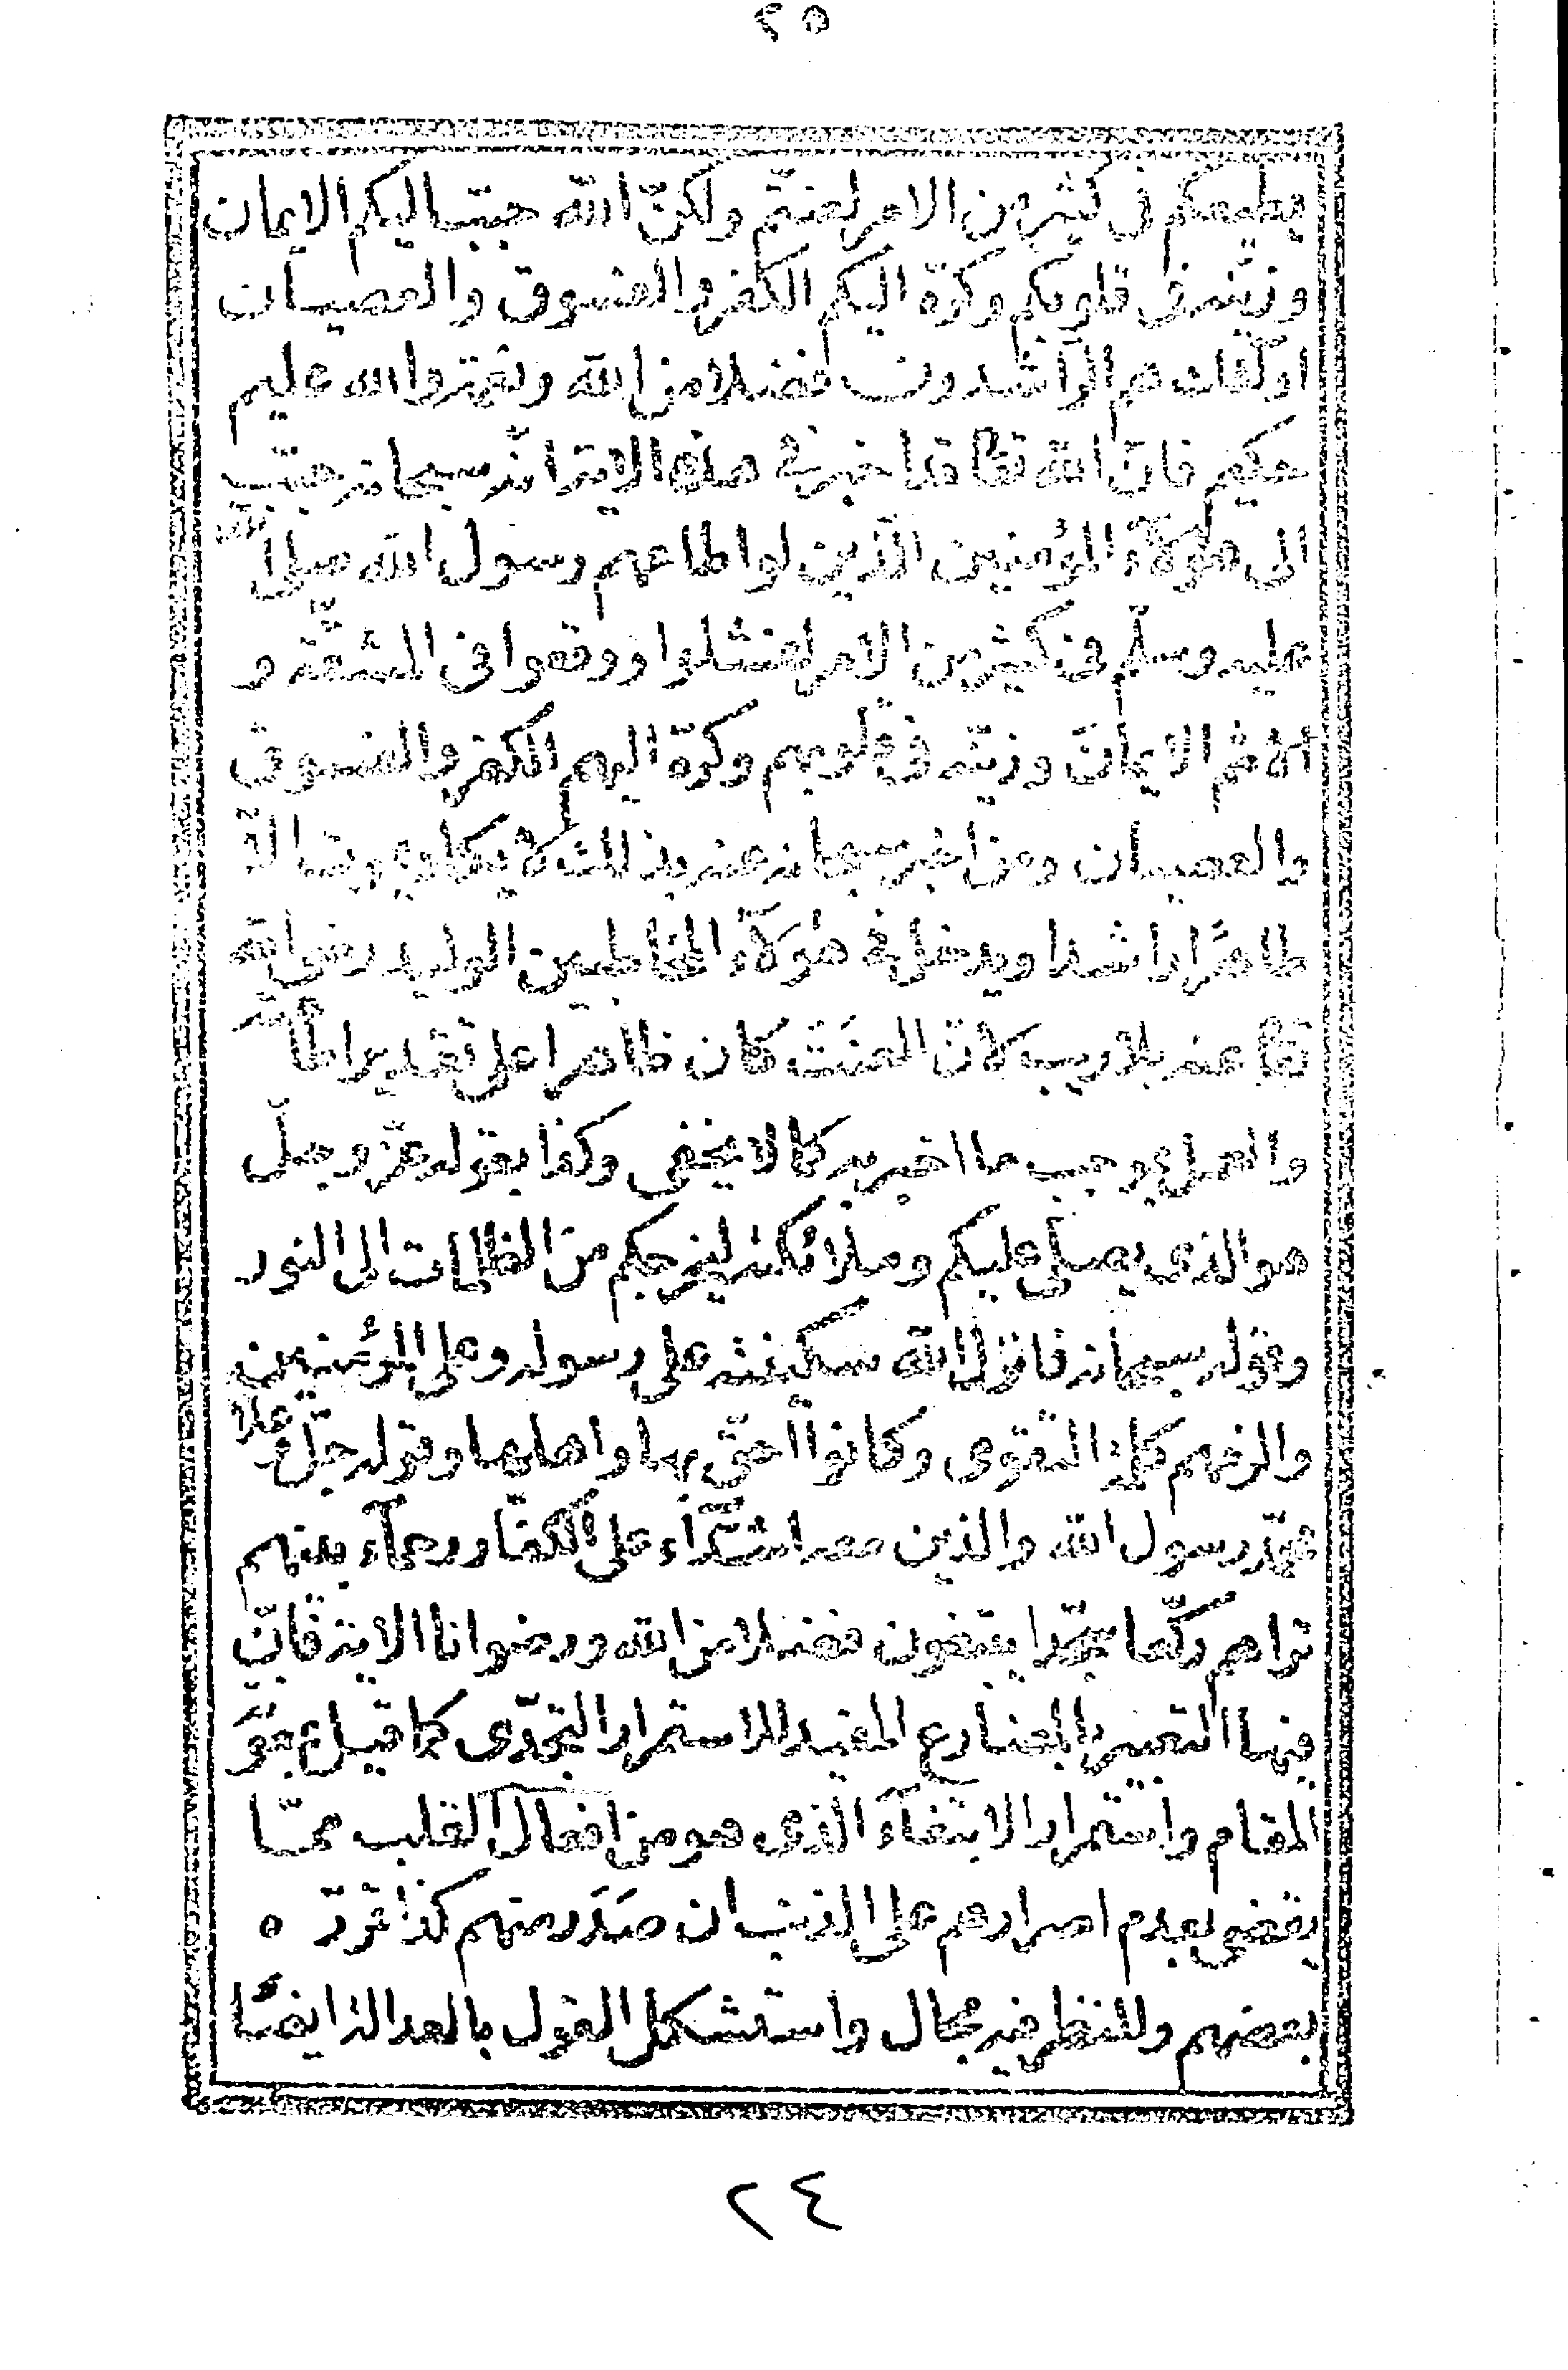 ٢٥
يطيعكم فى كثير من الامر لعنتم ولكنّ الله حبّب اليكم الايمان
وزيّنه فى قلوبكم وكرّه اليكم الكفر والفسوق والعصيان
اولٓئك هم الرّاشدون فضلا من الله ونعمة والله عليم
حكيم فانّ الله تعا قد اخبر فى هذه الاية انّه سبحانه حبّب
الى هؤلآء المؤمنين الّذين لو اطاعهم رسول الله صلى الله
عليه وسلّم فى كثير من الامر لفشلوا ووقعوا فى المشقّة و
الاثم الايمان وزيّنه فى قلوبهم وكرّه اليهم الكفر والفسوق
والعصيان ومن اخبر سبحانه عنه بذلك
طاهرًا راشدا ويدخل فى هؤلآء المخاطبين الوليد رضى الله
تعا عنه بلا ريب لانّ العنت كان ظاهرا على تقدير اطاعته
والعمل بموجب ما اخبر به كما لا يخفى وكذا بقوله عزّ وجلّ
هو الذى يصلّى عليكم وملائكته ليخرجكم من الظلمات الى النور
وقوله سبحانه فانزل الله سكينته على رسوله وعلى المؤمنين
والزمهم كلمة التقوى وكانوا احقّ بها واهلها وقوله جلّ وعلا
محمّد رسول الله والذين معه اشدّآء على الكفّار رحمآء بينهم
تراهم ركّعا سجّدا يبتغون فضلا من الله ورضوانا الاية فانّ
فيها التعبير بالمضارع المفيد للاستمرار التجدّدى كما قيل
المقام واستمرار الابتغآء الّذى هو من افعال القلب ممّا
يقضى بعدم اصرارهم على الذنب ان صَدَر منهم كذا قرّره
بعضهم وللنظر فيه مجال واستشكل القول بالعدالة ايضًا
٢٤